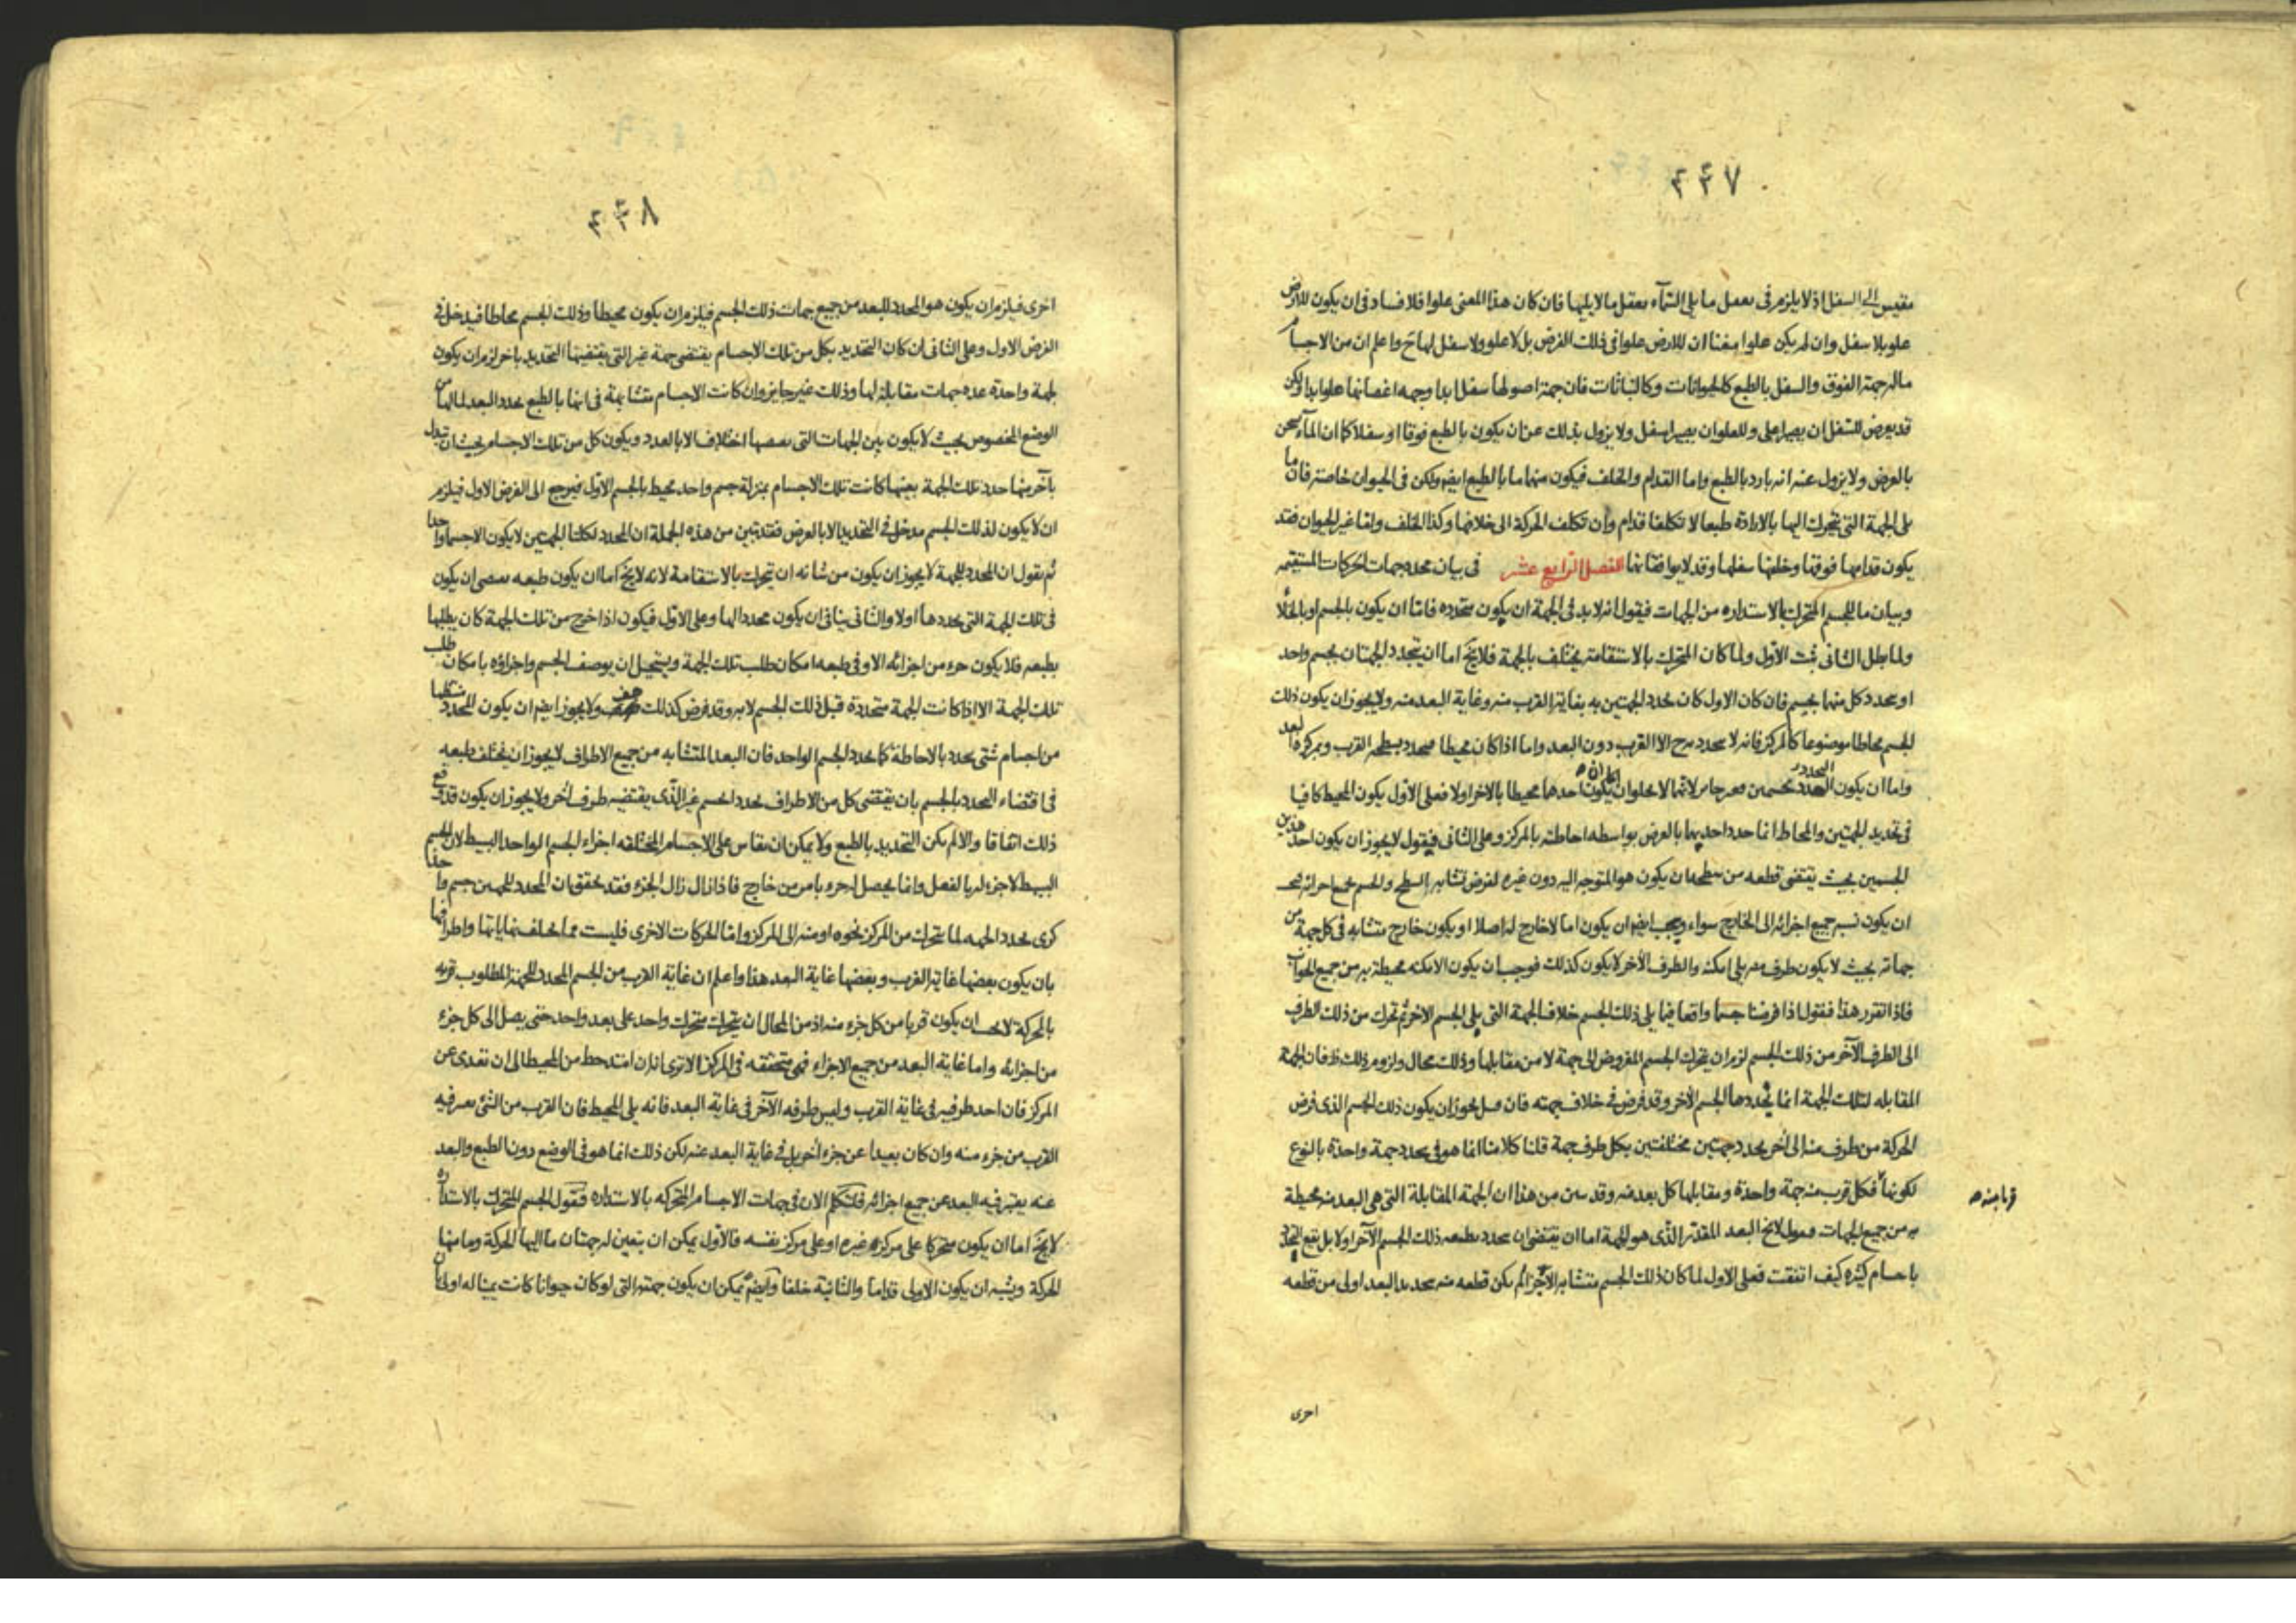 ٤٤٧
مقيس الى السفل اذ لا يلزم فى تعقل ما يلى السّمآء تعقل ما لا يليها فان كان هذا المعنى علوا فلا فساد فى ان يكون للارض
علو بلا سفل وان لم يكن علوا منعنا ان للارض علوا فى ذلك الفرض بل لا علو ولا سفل لها ح واعلم ان من الاجسام
ما له جهة الفوق والسفل بالطبع كالحيوانات وكالنباتات فان جهة اصولها سفل ابدا وجهه اغصانها علو ابدا ولكن
قد يعرض للسّفل ان يصير اعلى وللعلو ان يصير اسفل ولا يزول بذلك عن ان يكون بالطبع فوقا او سفلا كما ان المآء يسخن
بالعرض ولا يزول عنه انه بارد بالطبع واما القدام والخلف فيكون منهما ما بالطبع ايضا ولكن فى الحيوان خاصة فان ما
يلى الجهة التى يتحرك اليها بالارادة طبعا لا تكلفا قدام وان تكلف الحركة الى خلافها وكذا الخلف واما غير الحيوان فقد
يكون قدامها فوقها وخلفها سفلها وقد لا يوافقانها الفصل الرابع عشر فى بيان محدد جهات الحركات المستقيمه
وبيان ما للجسم المتحرك بالاستداره من الجهات فيقول انه لا بد فى الجهة ان يكون متحدده فامّا ان يكون بالجسم او بالخلا
ولما بطل الثانى ثبت الاوّل ولما كان المتحرك بالاستقامة يختلف بالجهة فلا يخ اما ان يتحدد الجهتان بجسم واحد
او يتحدد كل منهما بجسم فان كان الاول كان تحدد الجهتين به بغاية القرب منه وغاية البعد منه ولا يجوز ان يكون ذلك
الجسم محاطا موضوعا كالمركز فانه لا يتحدد به ح الا القرب دون البعد واما اذا كان محيطا فيتحدد بسطحه القرب وبمركزه البعد
واما ان يكون التحدد بجسمين لانهما لا يخلوا اما ان يكون احدهما محيطا بالاخر اولا فعلى الاول يكون المحيط كافيا
فى تحديد الجهتين والمحاط انما حدد احديهما بالعرض بواسطه احاطته بالمركز وعلى الثانى فيقول لا يجوز ان يكون احد هذين
الجسمين بحيث يقتضى قطعه من سطحه ان يكون هو المتوجه اليه دون غيره لفرض تشابه السطح والجسم جميع اجزائه يجب
ان يكون نسبه جميع اجزائه الى الخارج سواء ويجب ايضا ان يكون اما لا خارج له اصلا او يكون خارج متشابه فى كل جهة من
جهاته بحيث لا يكون طرف منه يلى امكنة والطرف الآخر لا يكون كذلك فوجب ان يكون الامكنه محيطة به من جميع الجوانب
فاذا تقرر هذا فنقول اذا فرضنا جسما واقعا فيما يلى ذلك الجسم خلاف الجهة التى يلى الجسم الآخر ثم تحرك من ذلك الطرف
الى الطرف الآخر من ذلك الجسم لزم ان يتحرك الجسم المفروض الى جهة لا من مقابلها وذلك محال ولزوم ذلك ظ فان الجهة
المقابله لتلك الجهة انما يحددها الجسم الآخر وقد فرض فى خلاف جهته فان قيل يجوز ان يكون ذلك الجسم الذى فرض
الحركة من طرف منه الى آخر يحدد جهتين مختلفتين بكل طرف جهة قلنا كلامنا انما هو فى تحدد جهة واحدة بالنوع
لكونها فكل قرب منه جهة واحدة ومقابلها كل بعد منه وقد تبين من هذا ان الجهة المقابلة التى هى البعد منه محيطة
قربا منه صح
به من جميع الجهات فنقول لا يخ البعد المقدّر الّذى هو الجهة اما ان يقتضى ان يحدد بطبعه ذلك الجسم الآخر اولا بل يقع التحدد
باجسام كثيره كيف اتفقت فعلى الاول لما كان ذلك الجسم متشابه الاجزآء لم يكن قطعه منه بتحديد البعد اولى من قطعه
اخرى
٤٤٨
اخرى فيلزم ان يكون هو المحدد للبعد من جميع جهات ذلك الجسم فيلزم ان يكون محيطا وذلك الجسم محاطا فيدخل فى
الفرض الاول وعلى الثانى ان كان التحديد بكل من تلك الاجسام يقتضى جهة غير التى يقتضيها التحديد باخر لزم ان يكون
لجهة واحدة عدة جهات مقابلة لها وذلك غير جايز وان كانت الاجسام متشابهة فى انها بالطبع يحدد البعد لما لها من
الوضع المخصوص بحيث لا يكون بين الجهات التى بعضها اختلاف الا بالعدد ويكون كل من تلك الاجسام بحيث ان تبدل
بآخر منها حدد تلك الجهة بعينها كانت تلك الاجسام بمنزلة جسم واحد محيط بالجسم الاوّل فيرجع الى الفرض الاول فيلزم
ان لا يكون لذلك الجسم مدخل فى التحديد الا بالعرض فقد تبين من هذه الجملة ان المحدد لكلتا الجهتين لا يكون الا جسما واحدا
ثم نقول ان المحدد للجهة لا يجوز ان يكون من شانه ان يتحرك بالاستقامة لانه لا يخ اما ان يكون طبعه يقتضى ان يكون
فى تلك الجهة التى يحددها اولا والثانى ينافى ان يكون محددا لها وعلى الاول فيكون اذا خرج من تلك الجهة كان يطلبها
بطبعه فلا يكون جزء من اجزائه الا وفى طبعه امكان طلب تلك الجهة ويستحيل ان يوصف الجسم واجزاؤه بامكان طلب
تلك الجهة الا اذا كانت الجهة متحددة قبل ذلك الجسم لا به وقد فرض كذلك هف ولا يجوز ايضا ان يكون المحدد متشكلا
من اجسام شتى يحدد بالاحاطة كما يحدد الجسم الواحد فان البعد المتشابه من جميع الاطراف لا يجوز ان يختلف طبعه
فى اقتضاء التحدد بالجسم بان يقتضى كل من الاطراف تحدد الجسم غير الّذى يقتضيه طرف آخر ولا يجوز ان يكون قد وقع
ذلك اتفاقا والا لم يكن التحديد بالطبع ولا يمكن ان يقاس على الاجسام المختلفه اجزاء الجسم الواحد البسيط لان الجسم
البسيط لا جزء له بالفعل وانما يحصل له جزء بامر من خارج فاذا زال زال الجزء فقد تحقق ان المحدد للجهتين جسم واحد
كرى يحدد الجهه لما يتحرك من المركز نحوه او منه الى المركز واما الحركات الاخرى فليست مما يختلف نهاياتها واطرافها
بان يكون بعضها غاية القرب وبعضها غاية البعد هذا واعلم ان غاية القرب من الجسم المحدد للجهة المطلوب قربه
بالحركة لا يجب ان يكون قربا من كل جزء منه اذ من المحال ان يتحرك متحرك واحد على بعد واحد حتى يصل الى كل جزء
من اجزائه واما غاية البعد من جميع الاجزاء فهى متحققه فى المركز الا ترى انه ان امتد خط من المحيط الى ان تعدى عن
المركز فان احد طرفيه فى غاية القرب وليس طرفه الآخر فى غاية البعد فانه يلى المحيط فان القرب من الشئ يعتبر فيه
القرب من جزء منه وان كان بعيدا عن جزء آخر بل فى غاية البعد عنه لكن ذلك انما هو فى الوضع دون الطبع والبعد
عنه يعتبر فيه البعد عن جميع اجزائه فلنتكلم الان فى جهات الاجسام المتحركه بالاستداره فنقول الجسم المتحرك بالاستداره
لا يخ اما ان يكون متحركا على مركز غيره او على مركز نفسه فالاول يمكن ان يتعين له جهتان ما اليها الحركة وما منها
الحركة ويشبه ان يكون الاولى قداما والثانية خلفا وايضا يمكن ان يكون جهته التى لو كان حيوانا كانت يمينا له اولى بان